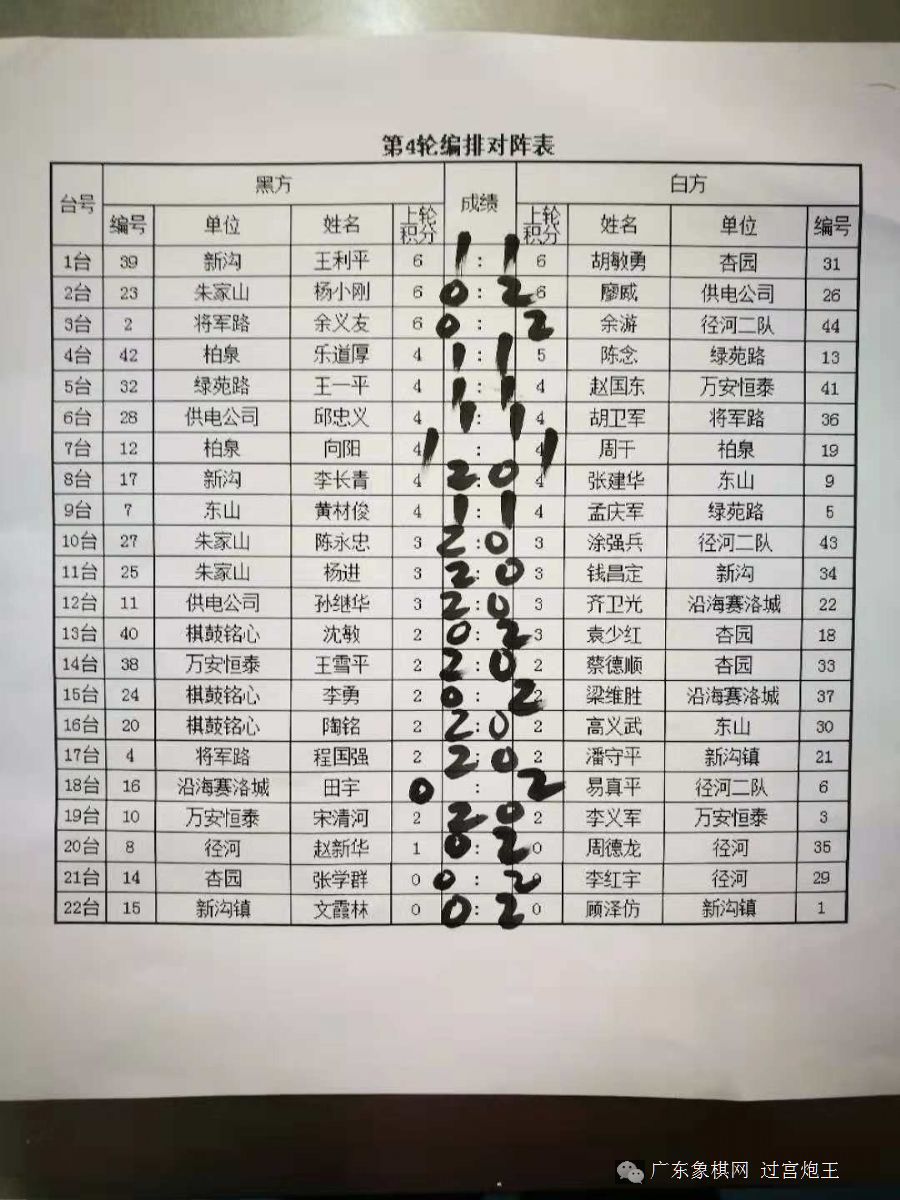 第4轮编排对阵表
台号 黑方 成绩 白方
编号 单位 姓名 上轮积分 上轮积分 姓名 单位 编号
1台 39 新沟 王利平 6 1 : 1 6 胡敏勇 杏园 31
2台 23 朱家山 杨小刚 6 0 : 2 6 廖威 供电公司 26
3台 2 将军路 余义友 6 0 : 2 余游 径河二队 44
4台 42 柏泉 乐道厚 4 1 : 1 5 陈念 绿苑路 13
5台 32 绿苑路 王一平 4 1 : 1 4 赵国东 万安恒泰 41
6台 28 供电公司 邱忠义 4 1 : 1 4 胡卫军 将军路 36
7台 12 柏泉 向阳 4 1 : 4 1 周干 柏泉 19
8台 17 新沟 李长青 4 2 : 0 4 张建华 东山 9
9台 7 东山 黄材俊 4 1 : 1 4 孟庆军 绿苑路 5
10台 27 朱家山 陈永忠 3 2 : 0 3 涂强兵 径河二队 43
11台 25 朱家山 杨进 3 2 : 0 3 钱昌定 新沟 34
12台 11 供电公司 孙继华 3 2 : 0 3 齐卫光 沿海赛洛城 22
13台 40 棋鼓铭心 沈敏 2 0 : 2 3 袁少红 杏园 18
14台 38 万安恒泰 王雪平 2 2 : 0 2 蔡德顺 杏园 33
15台 24 棋鼓铭心 李勇 2 0 : 2 2 梁维胜 沿海赛洛城 37
16台 20 棋鼓铭心 陶铭 2 2 : 0 2 高义武 东山 30
17台 4 将军路 程国强 2 2 : 0 2 潘守平 新沟镇 21
18台 16 沿海赛洛城 田宇 0 : 2 易真平 径河二队 6
19台 10 万安恒泰 宋清河 2 2 0 2 李义军 万安恒泰 3
20台 8 径河 赵新华 1 0 : 2 0 周德龙 径河 35
21台 14 杏园 张学群 0 0 : 2 李红宇 径河 29
22台 15 新沟镇 文霞林 0 0 : 2 0 顾泽仿 新沟镇 1
广东象棋网 过宫炮王